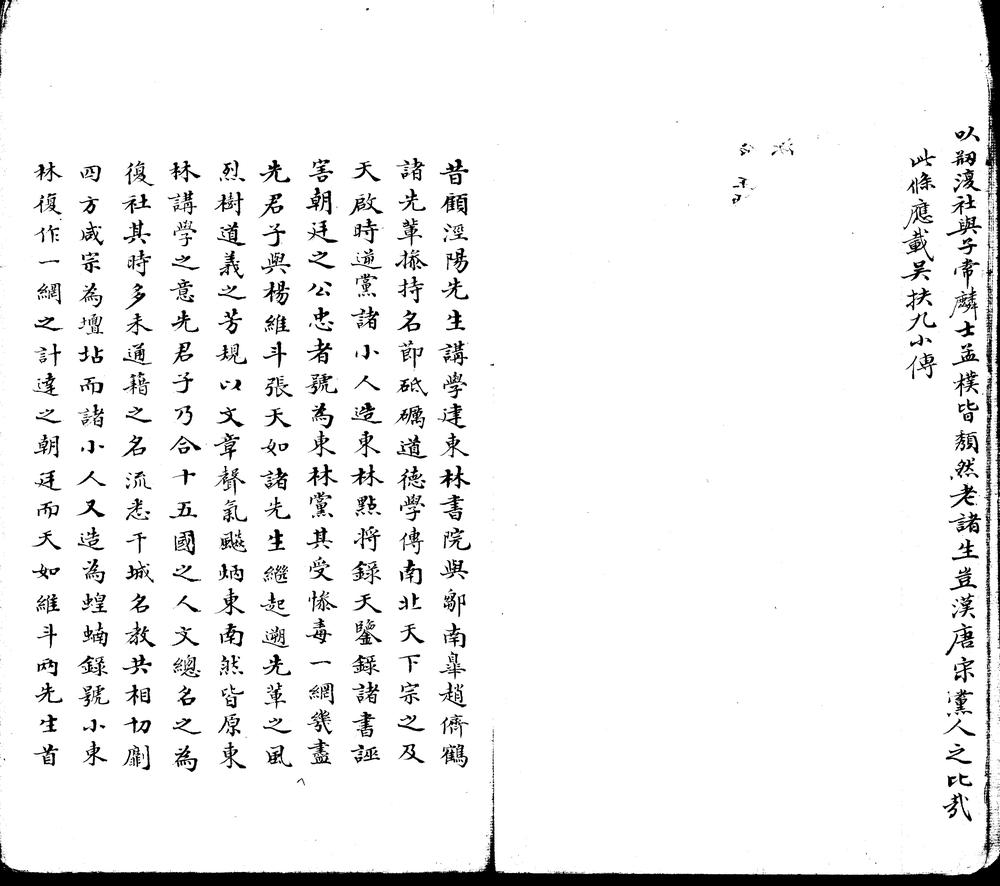 以剏澓社與子常麟士孟樸皆頹然老諸生豈漢唐宋黨人之比哉
此條應載吴扶九小傳
昔顧涇陽先生講學建東林書院與鄒南臯趙儕鶴
諸先輩搽持名節砥礪道德學傳南北天下宗之及
天啟時逆黨諸小人造東林點將錄天鑒錄諸書誣
害朝廷之公忠者號為東林黨其受慘毒一網幾盡
先君子與楊維斗張天如諸先生繼起遡先軰之風
烈樹道義之芳規以文章聲氣飈炳東南然皆原東
林講學之意先君子乃合十五國之人文總名之為
復社其時多未通籍之名流悉干城名教共相切劘
四方咸宗為壇坫而諸小人又造為蝗蝻錄號小東
林復作一網之計達之朝廷而天如維斗兩先生首